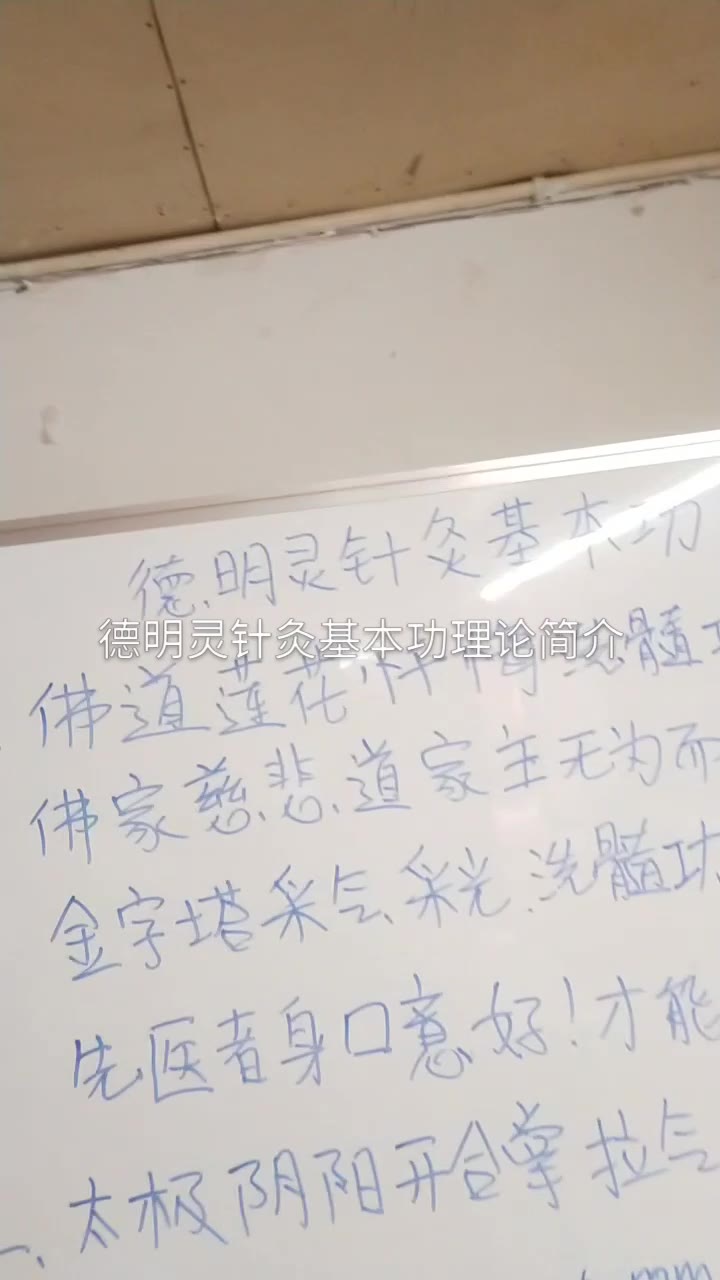 德、明灵针灸基本功
德明灵针灸基本功理论简介
佛道莲花 洗髓功
佛家慈悲、道家主无为而
金字塔采气、采光、洗髓功
先医者身口意好！才能
一、太极阴阳开合掌拉气